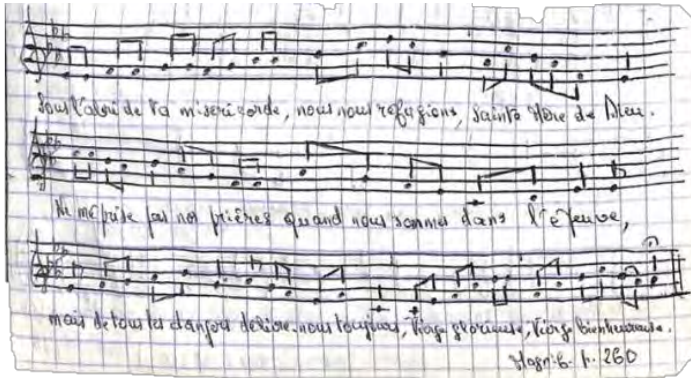 Sous l'abri de ta misericorde, nous nous refugions, Sainte Mère de Dieu.
Ne méprise pas nos prières quand nous sommes dans l'épreuve,
mais de tous les dangers délivre-nous toujours, Vierge glorieuse, Vierge bienheureuse.
p. 260